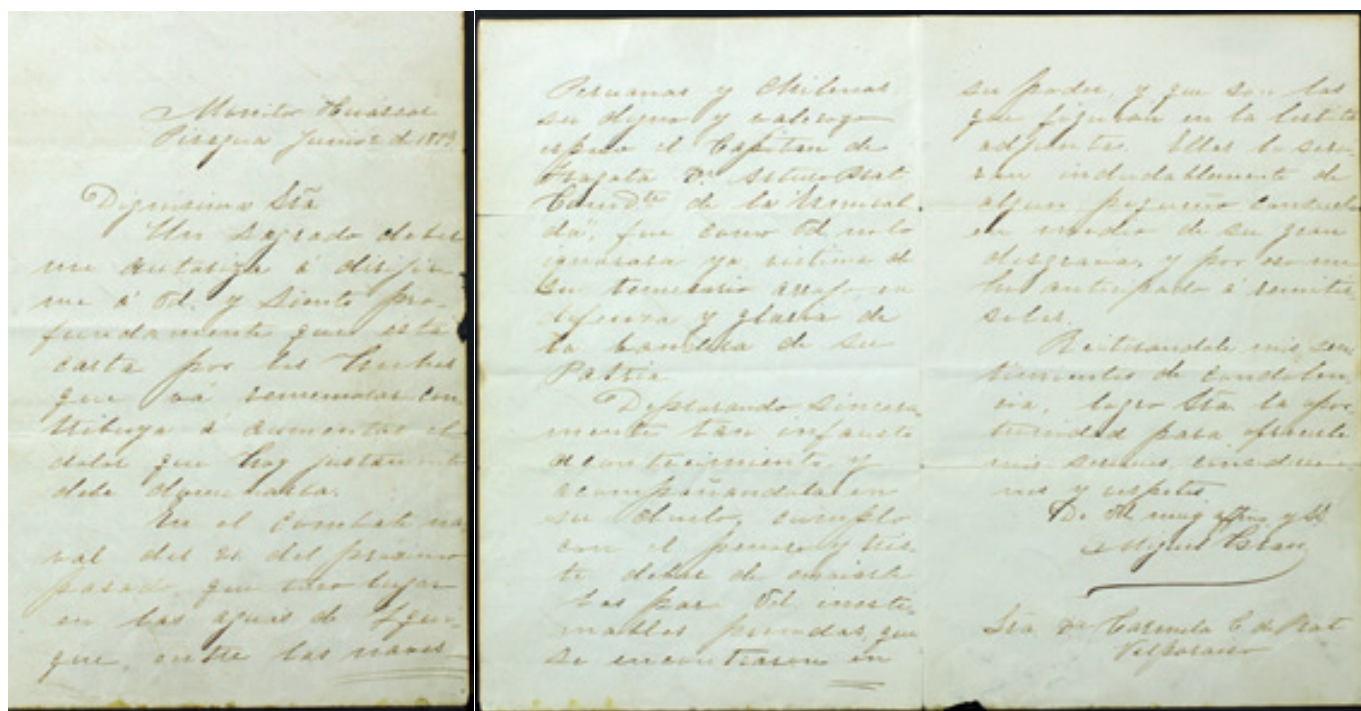 Monitor Huáscar
Pisagua Junio 2 de 1879
Dignísima Sra
Un sagrado deber
me autoriza á dirijir-
me á Ud. y siento pro-
fundamente que esta
carta por las luchas
que vá rememorar con-
tribuya á aumentar el
dolor que hoy justamente
debe dominarla.
En el combate na-
val del 21 del próximo
pasado, que tuvo lugar
en las aguas de Iqui-
que, entre las naves
Peruanas y Chilenas,
su digno y valeroso
esposo el Capitan de
Fragata Dn Arturo Prat
Comandte de la "Esmeral-
da", fue como Ud no lo
ignorará ya, victima de
su temerario arrojo en
defensa y gloria de
la bandera de su
Patria
Deplorando sincera-
mente tan infausto
acontecimiento, y
acompañandola en
su duelo, cumplo
con el penoso y tris-
te deber de enviarle
las para Ud. inesti-
mables prendas, que
se encontraron en
su poder, y que son las
que figuran en la lista
adjunta. Ellas le servi-
rán indudablemente de
algun pequeño consuelo
en medio de su gran
desgracia, y por eso me
he anticipado á remitir-
selas.
Reiterandole mis sen-
timientos de condolen-
cia, logro Sra. la opor-
tunidad para ofrecerle
mis servicios, consideracio-
nes y respetos
De Ud muy afmo y SS
Miguel Grau
Sra. Da Carmela C. de Prat
Valparaiso